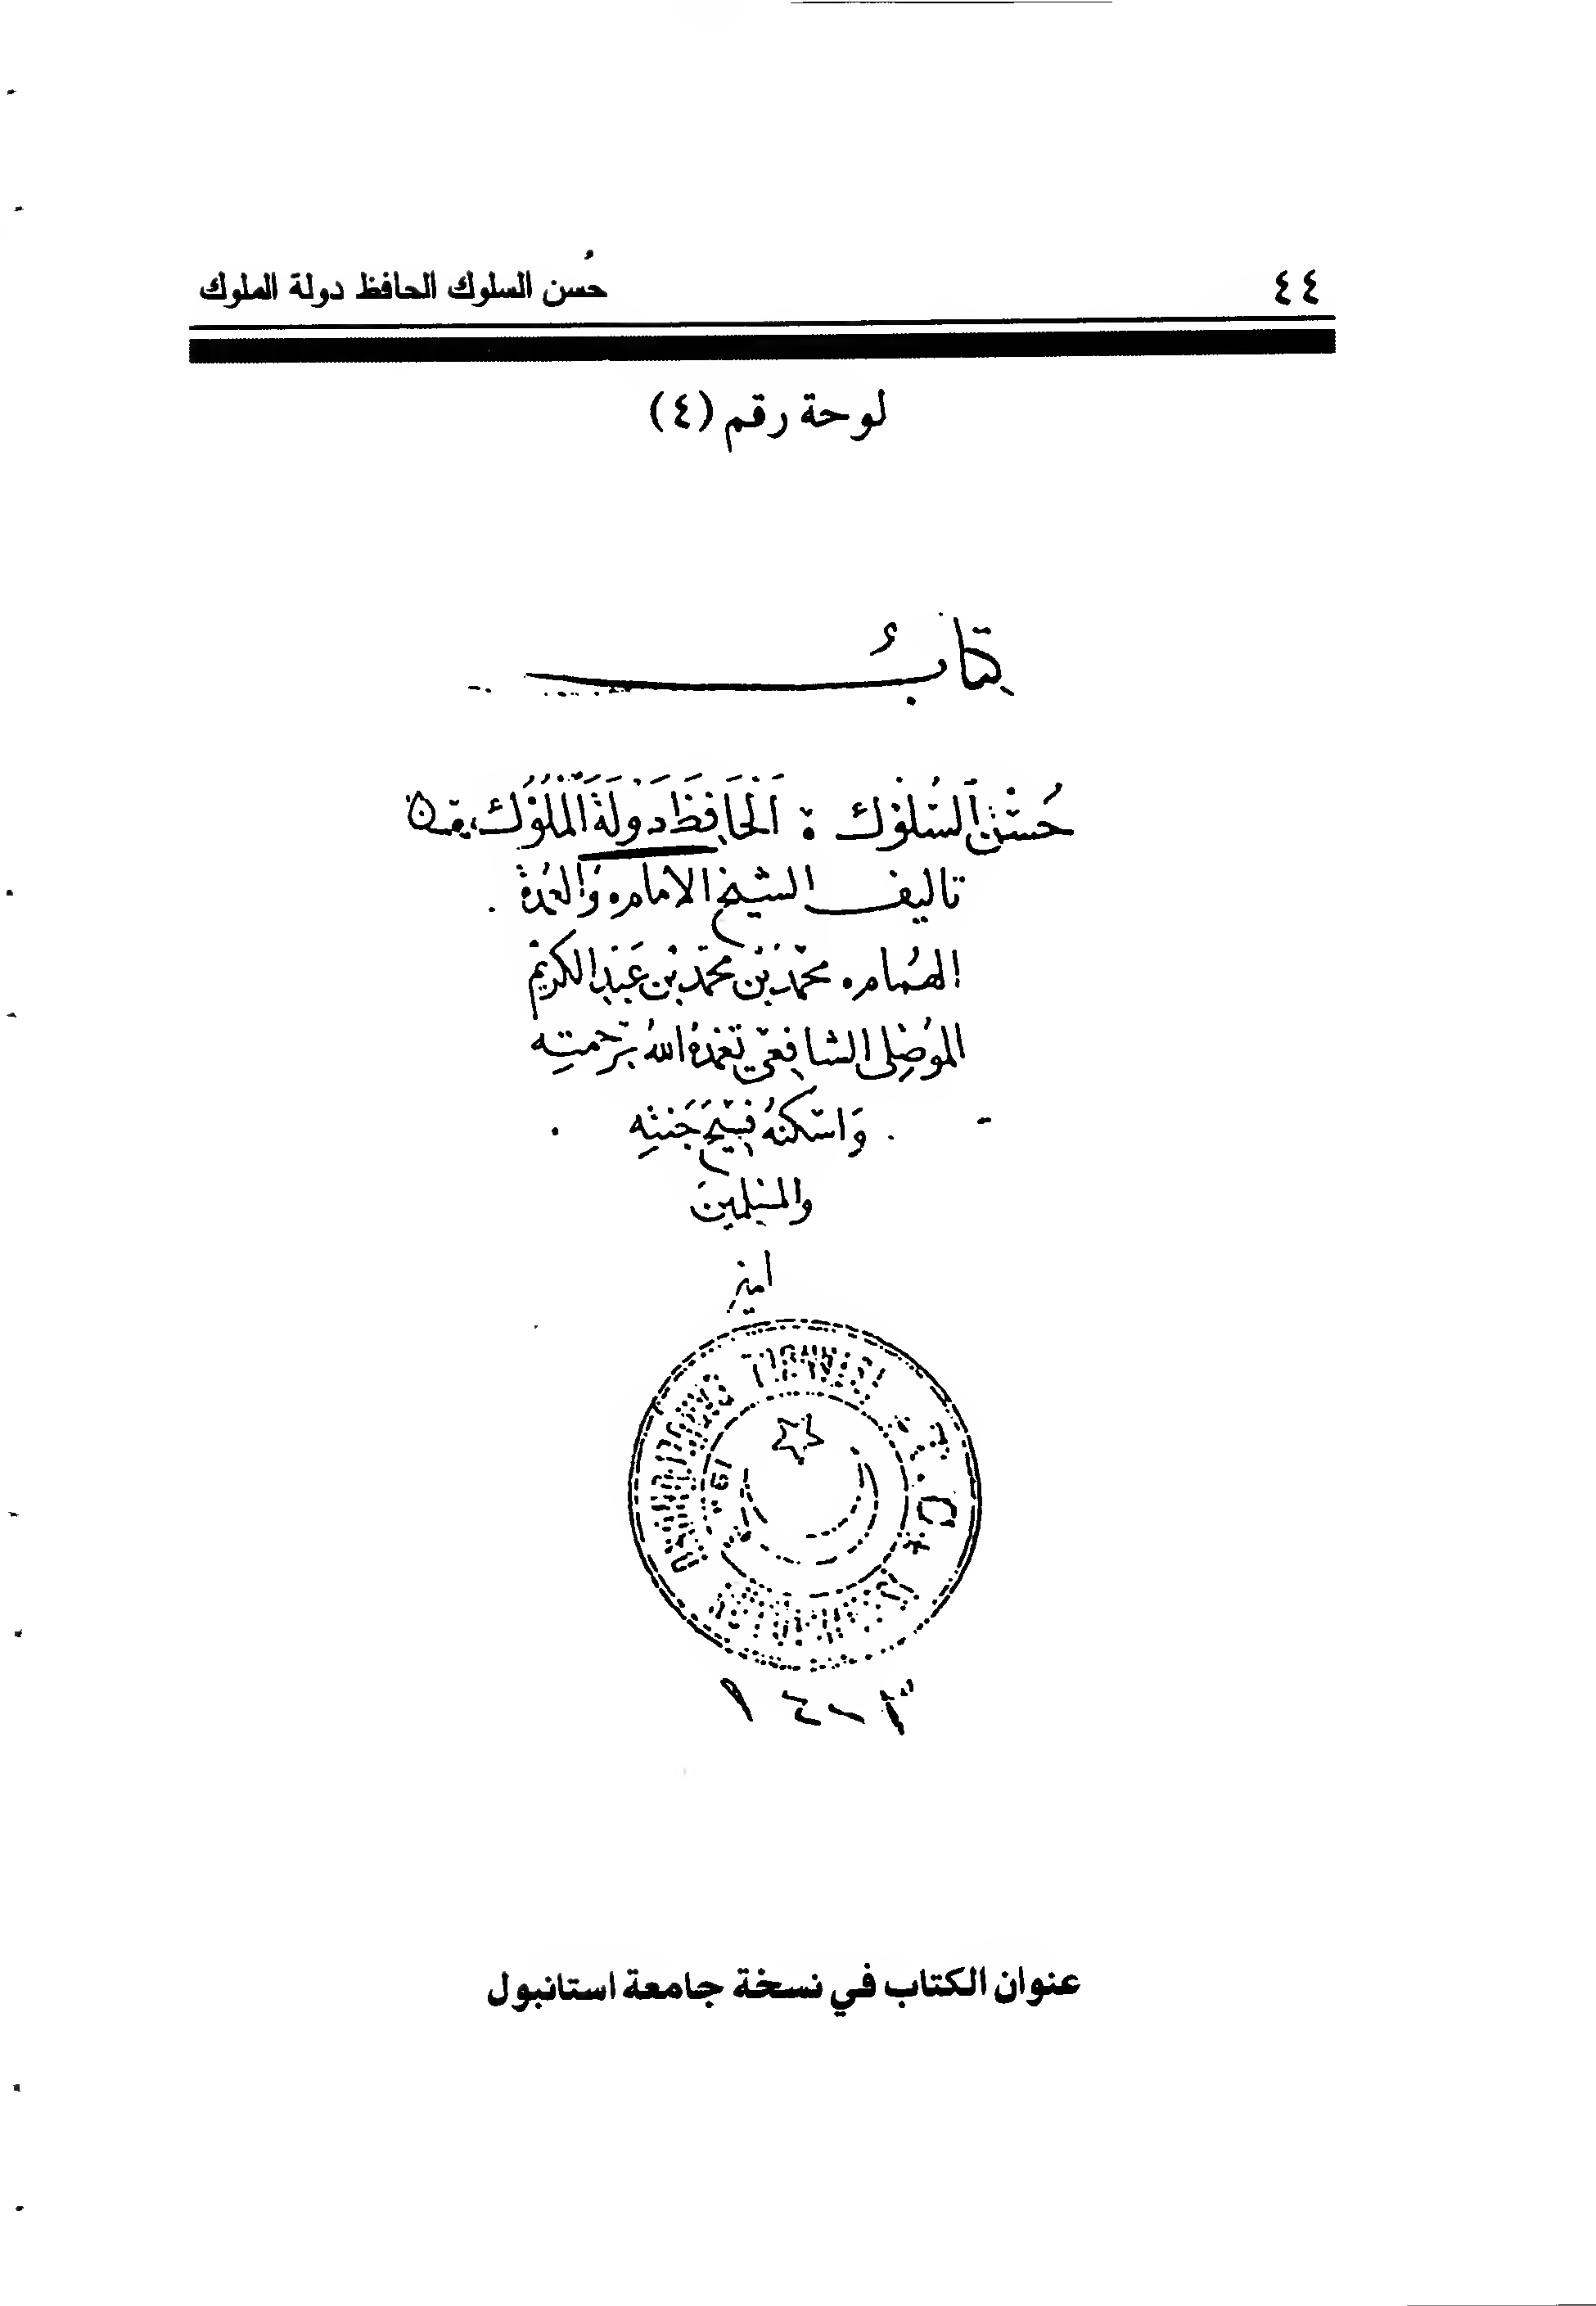 ٤٤ حُسن السلوك الحافظ دولة الملوك
لوحة رقم (٤)
كتابُ
حُسْنُ السُّلُوْك : اَلْحَافِظُ دَوْلَةَ الْمُلُوْك
تاليف الشيخ الامام والعمدة
الهُمام محمّد بْن محمّد بْن عَبْد الكريم
المُوْصِلي الشافعي تغمدهُ اللهُ برَحْمتِه
وَاسْكنهُ فَسِيْحَ جَنته
والمسلمين
امين
T.C.
عنوان الكتاب في نسخة جامعة استانبول